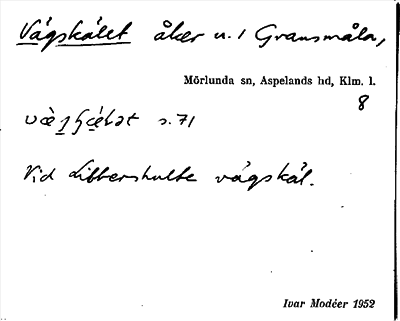 Vägskälet åker u. 1 Gransmåla,
Mörlunda sn, Aspelands hd, Klm. l.
8
s. 71
Vid Libbershulte vägskäl.
Ivar Modéer 1952